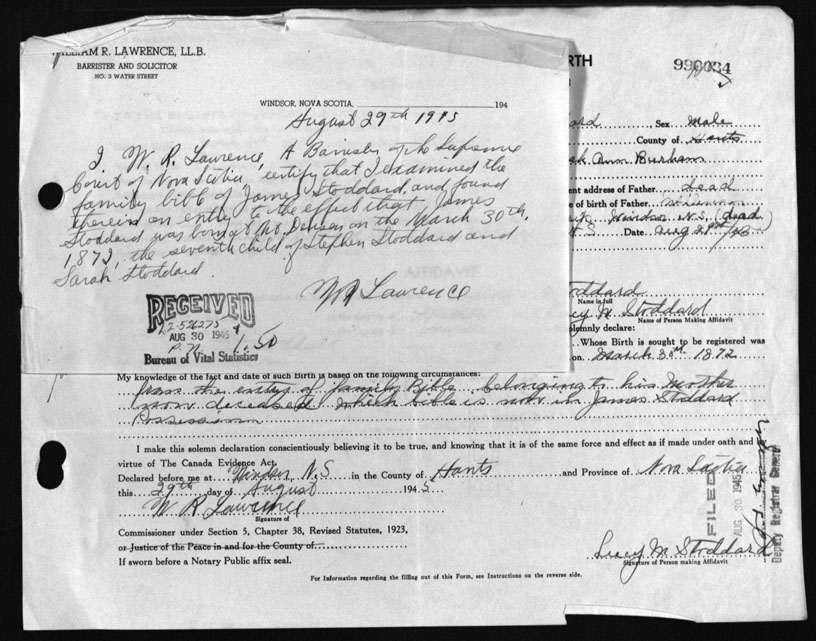 WILLIAM R. LAWRENCE, LL.B.
BARRISTER AND SOLICITOR
NO. 3 WATER STREET
WINDSOR, NOVA SCOTIA, 194
August 29th 1945
I W. R. Lawrence, A Barrister of the Supreme
Court of Nova Scotia, certify that I examined the
family bible of James Stoddard, and found
therein an entry to the effect that James
Stoddard was born at Mt. Denson on the March 30th,
1872, the seventh child of Stephen Stoddard and
Sarah Stoddard.
W R Lawrence
RECEIVED
AUG 30 1945
1.50
Bureau of Vital Statistics
RTH
990034
ard Sex Male
County of Hants
ah Ann Burham
ent address of Father dead
e of birth of Father
Windsor N.S. (dead)
N.S. Date Aug 29th/45
AFFIDAVIT
toddard
Name in full
cy M. Stoddard
Name of Person Making Affidavit
olemnly declare:
Whose Birth is sought to be registered was
on March 30th 1872
My knowledge of the fact and date of such Birth is based on the following circumstances:
from the entry of family Bible belonging to his Mother
now deceased which bible is now in James Stoddard
Possession
I make this solemn declaration conscientiously believing it to be true, and knowing that it is of the same force and effect as if made under oath and by
virtue of The Canada Evidence Act.
Declared before me at Windsor N.S in the County of Hants and Province of Nova Scotia
this 29th day of August 1945
W R Lawrence
Signature of
Commissioner under Section 5, Chapter 38, Revised Statutes, 1923,
or Justice of the Peace in and for the County of
If sworn before a Notary Public affix seal.
Lucy M. Stoddard
Signature of Person making Affidavit
For Information regarding the filling out of this Form, see Instructions on the reverse side.
FILED
AUG 30 1945
Deputy Registrar General